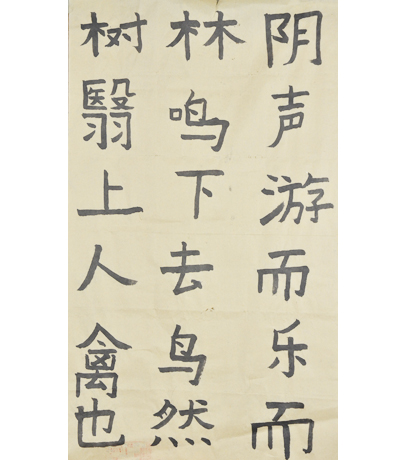 树林阴
翳鸣声
上下游
人去而
禽鸟乐
也然而